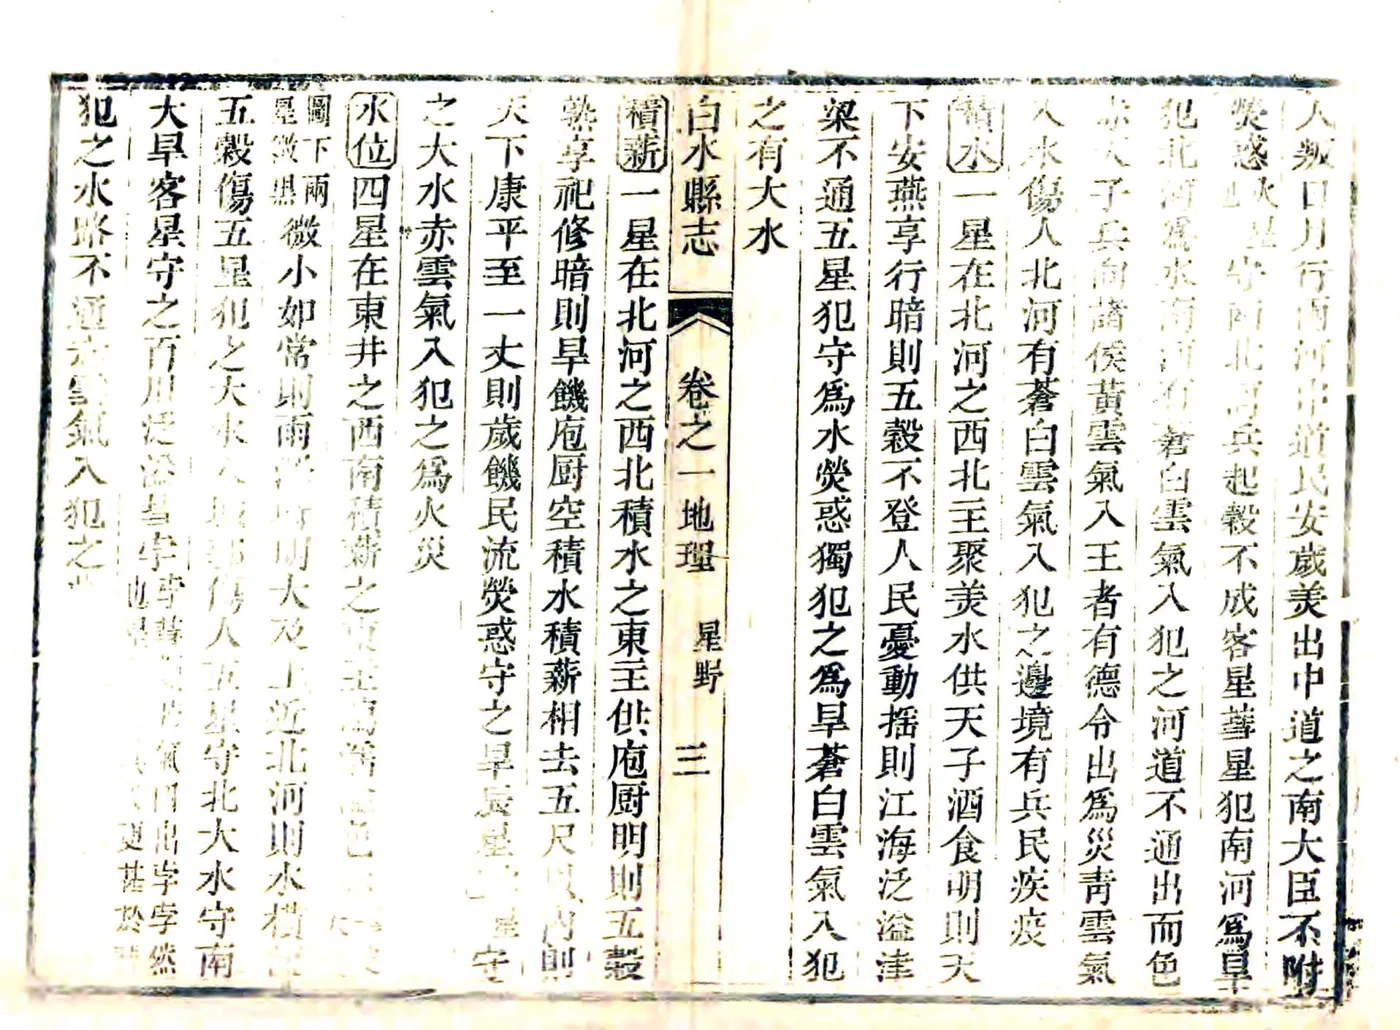 人叛日月行兩河中道民安歲美出中道之南大臣不附
熒惑火星守南北河兵起穀不成客星彗星犯南河爲旱
犯北河爲水南河有蒼白雲氣入犯之河道不通出而色
赤天子兵向諸侯黃雲氣入王者有德令出爲災青雲氣
入水傷人北河有蒼白雲氣入犯之邊境有兵民疾疫
積水一星在北河之西北主聚美水供天子酒食明則天
下安燕享行暗則五穀不登人民憂動摇則江海泛溢津
梁不通五星犯守爲水熒惑獨犯之爲旱蒼白雲氣入犯
之有大水
白水縣志 卷之一地理 星野 三
積薪一星在北河之西北積水之東主供庖厨明則五穀
熟享祀修暗則旱饑庖厨空積水積薪相去五尺以内則
天下康平至一丈則歲饑民流熒惑守之旱辰星 守
之大水赤雲氣入犯之爲火災
水位四星在東井之西南積薪之東主
圖下兩
星微黑微小如常則雨 明大及上近北河則水橫
五穀傷五星犯之大水入城郭傷人五星守北大水守南
大旱客星守之百川泛溢彗孛 孛彗 氣日出孛孛然
也 更甚於
犯之水路不通赤雲氣入犯之